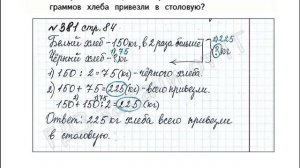 граммов хлеба привезли в столовую?
№381 стр. 84
Белый хлеб - 150кг, в 2 раза больше
225
?кг
Чёрный хлеб - ?кг
75
1) 150 : 2 = 75 (кг) - чёрного хлеба.
2) 150 + 75 = 225 (кг) - всего привезли.
75
150 + 150 : 2 = 225 (кг)
Ответ: 225 кг хлеба всего привезли
в столовую.